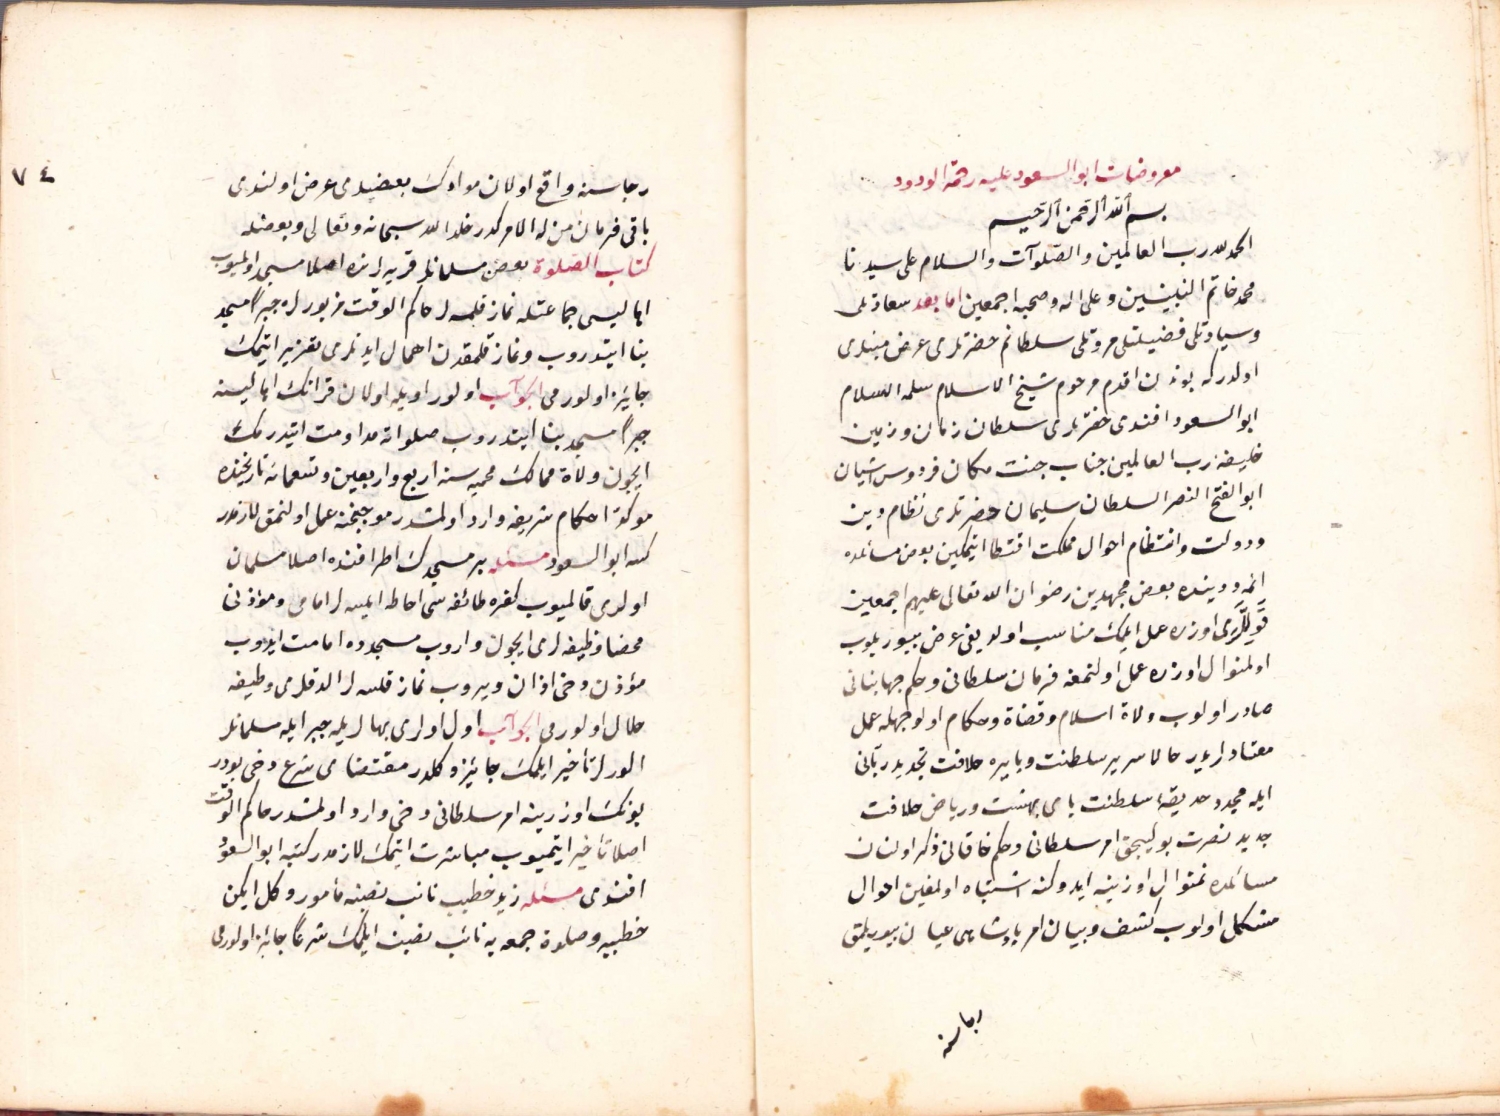 معروضات ابو السعود عليه رحمة الودود
بسم الله الرحمن الرحيم
الحمد لله رب العالمين والصلوات والسلام على سيدنا
محمد خاتم النبيين وعلى اله وصحبه اجمعين اما بعد سعادتلى
وسيادتلى فضيلتلى مروتلى سلطانم حضرتلرى عرض
اولدركه بوندن اقدم مرحوم شيخ الاسلام سلمه السلام
ابو السعود افندى حضرتلرى سلطان زمان وزمين
خليفه رب العالمين جناب جنت مكان فردوس اشيان
ابو الفتح النصر السلطان سليمان حضرتلرى نظام دين
ودولت وانتظام احوال مملكت اقتضا ايتمكين بعض مسائلده
ائمه دينده بعض مجتهدين رضوان الله تعالى عليهم اجمعين
قوللرى اوزره عمل ايلمك مناسب اولديغى عرض بيوريلوب
اولمنوال اوزره عمل اولنمغه فرمان سلطانى وحكم جهانبانى
صادر اولوب ولاة اسلام وقضاة وحكام اولوجهله عمل
معتاد ايدر حالا سرير سلطنت وپايره خلافت تجديد ربانى
ايله مجدد حديقه سلطنت باهى بهشت ورياض خلافت
جديد نصرت بوليجق امر سلطانى وحكم خاقانى ذكر اولنان
مسائلده نمنوال اوزرينه ايدوكنه اشتباه اولمغين احوال
مشكل اولوب كشف وبيان امر پادشاهى عيان بيوريلمق
رجاسنه
٧٤
رجاسنه واقع اولان موادك بعضيلرى عرض اولندى
باقى فرمان من له الامركدر خلد الله سبحانه وتعالى
كتاب الصلوة بعض مسلمانلر قريه لرنده اصلا مسجد اولميوب
اهاليسى جماعتله نماز قلمسه لر حاكم الوقت مزبورلره جبرا مسجد
بنا ايتدروب ونماز قلمقدن اهمال ايدنلرى تعزير ايتمك
جايز اولورمى الجواب اولور اويله اولان قرانك اهاليسنه
جبرا مسجد بنا ايتدروب صلواته مداومت ايتدرمك
ايچون ولاة ممالك محميه سنه اربع واربعين وتسعمائه تاريخنده
مؤكد احكام شريفه وارد اولمشدر موجبنجه عمل اولنمق لازمدر
كتبه ابو السعود مسئله بر مسجدك اطرافنده اصلا مسلمان
اولرى قالميوب كفره طائفه سى احاطه ايلسه لر امامى ومؤذنى
محضا وظيفه لرى ايچون واروب مسجدده امامت ايدوب
مؤذن دخى اذان ويروب نماز قلسه لر الدقلرى وظيفه
حلال اولورمى الجواب اول اولرى بهالريله جبر ايله مسلمانلر
الورلر تأخير ايلمك جائز دكلدر مقتضاى شرع دخى بودر
بونك اوزرينه امر سلطانى دخى وارد اولمشدر حاكم الوقت
اصلا تأخير ايتميوب مباشرت ايتمك لازمدر كتبه ابو السعود
افندى مسئله زيد خطيب نائب نصبنه مأمور دكل ايكن
خطبه وصلوة جمعه يه نائب نصب ايلمك شرعا جائز اولورمى